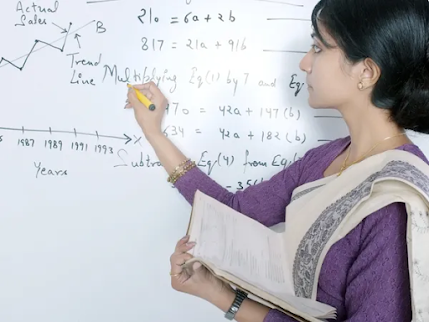 Actual
Sales
B
Trend
Line
210 = 6a + 2b
817 = 21a + 91b
Multiplying Eq(1) by 7 and Eq
70 = 42a + 147(b)
634 = 42a + 182(b)
1987 1989 1991 1993 X
Years
Subtra Eq(4) from Eq
= 35(b